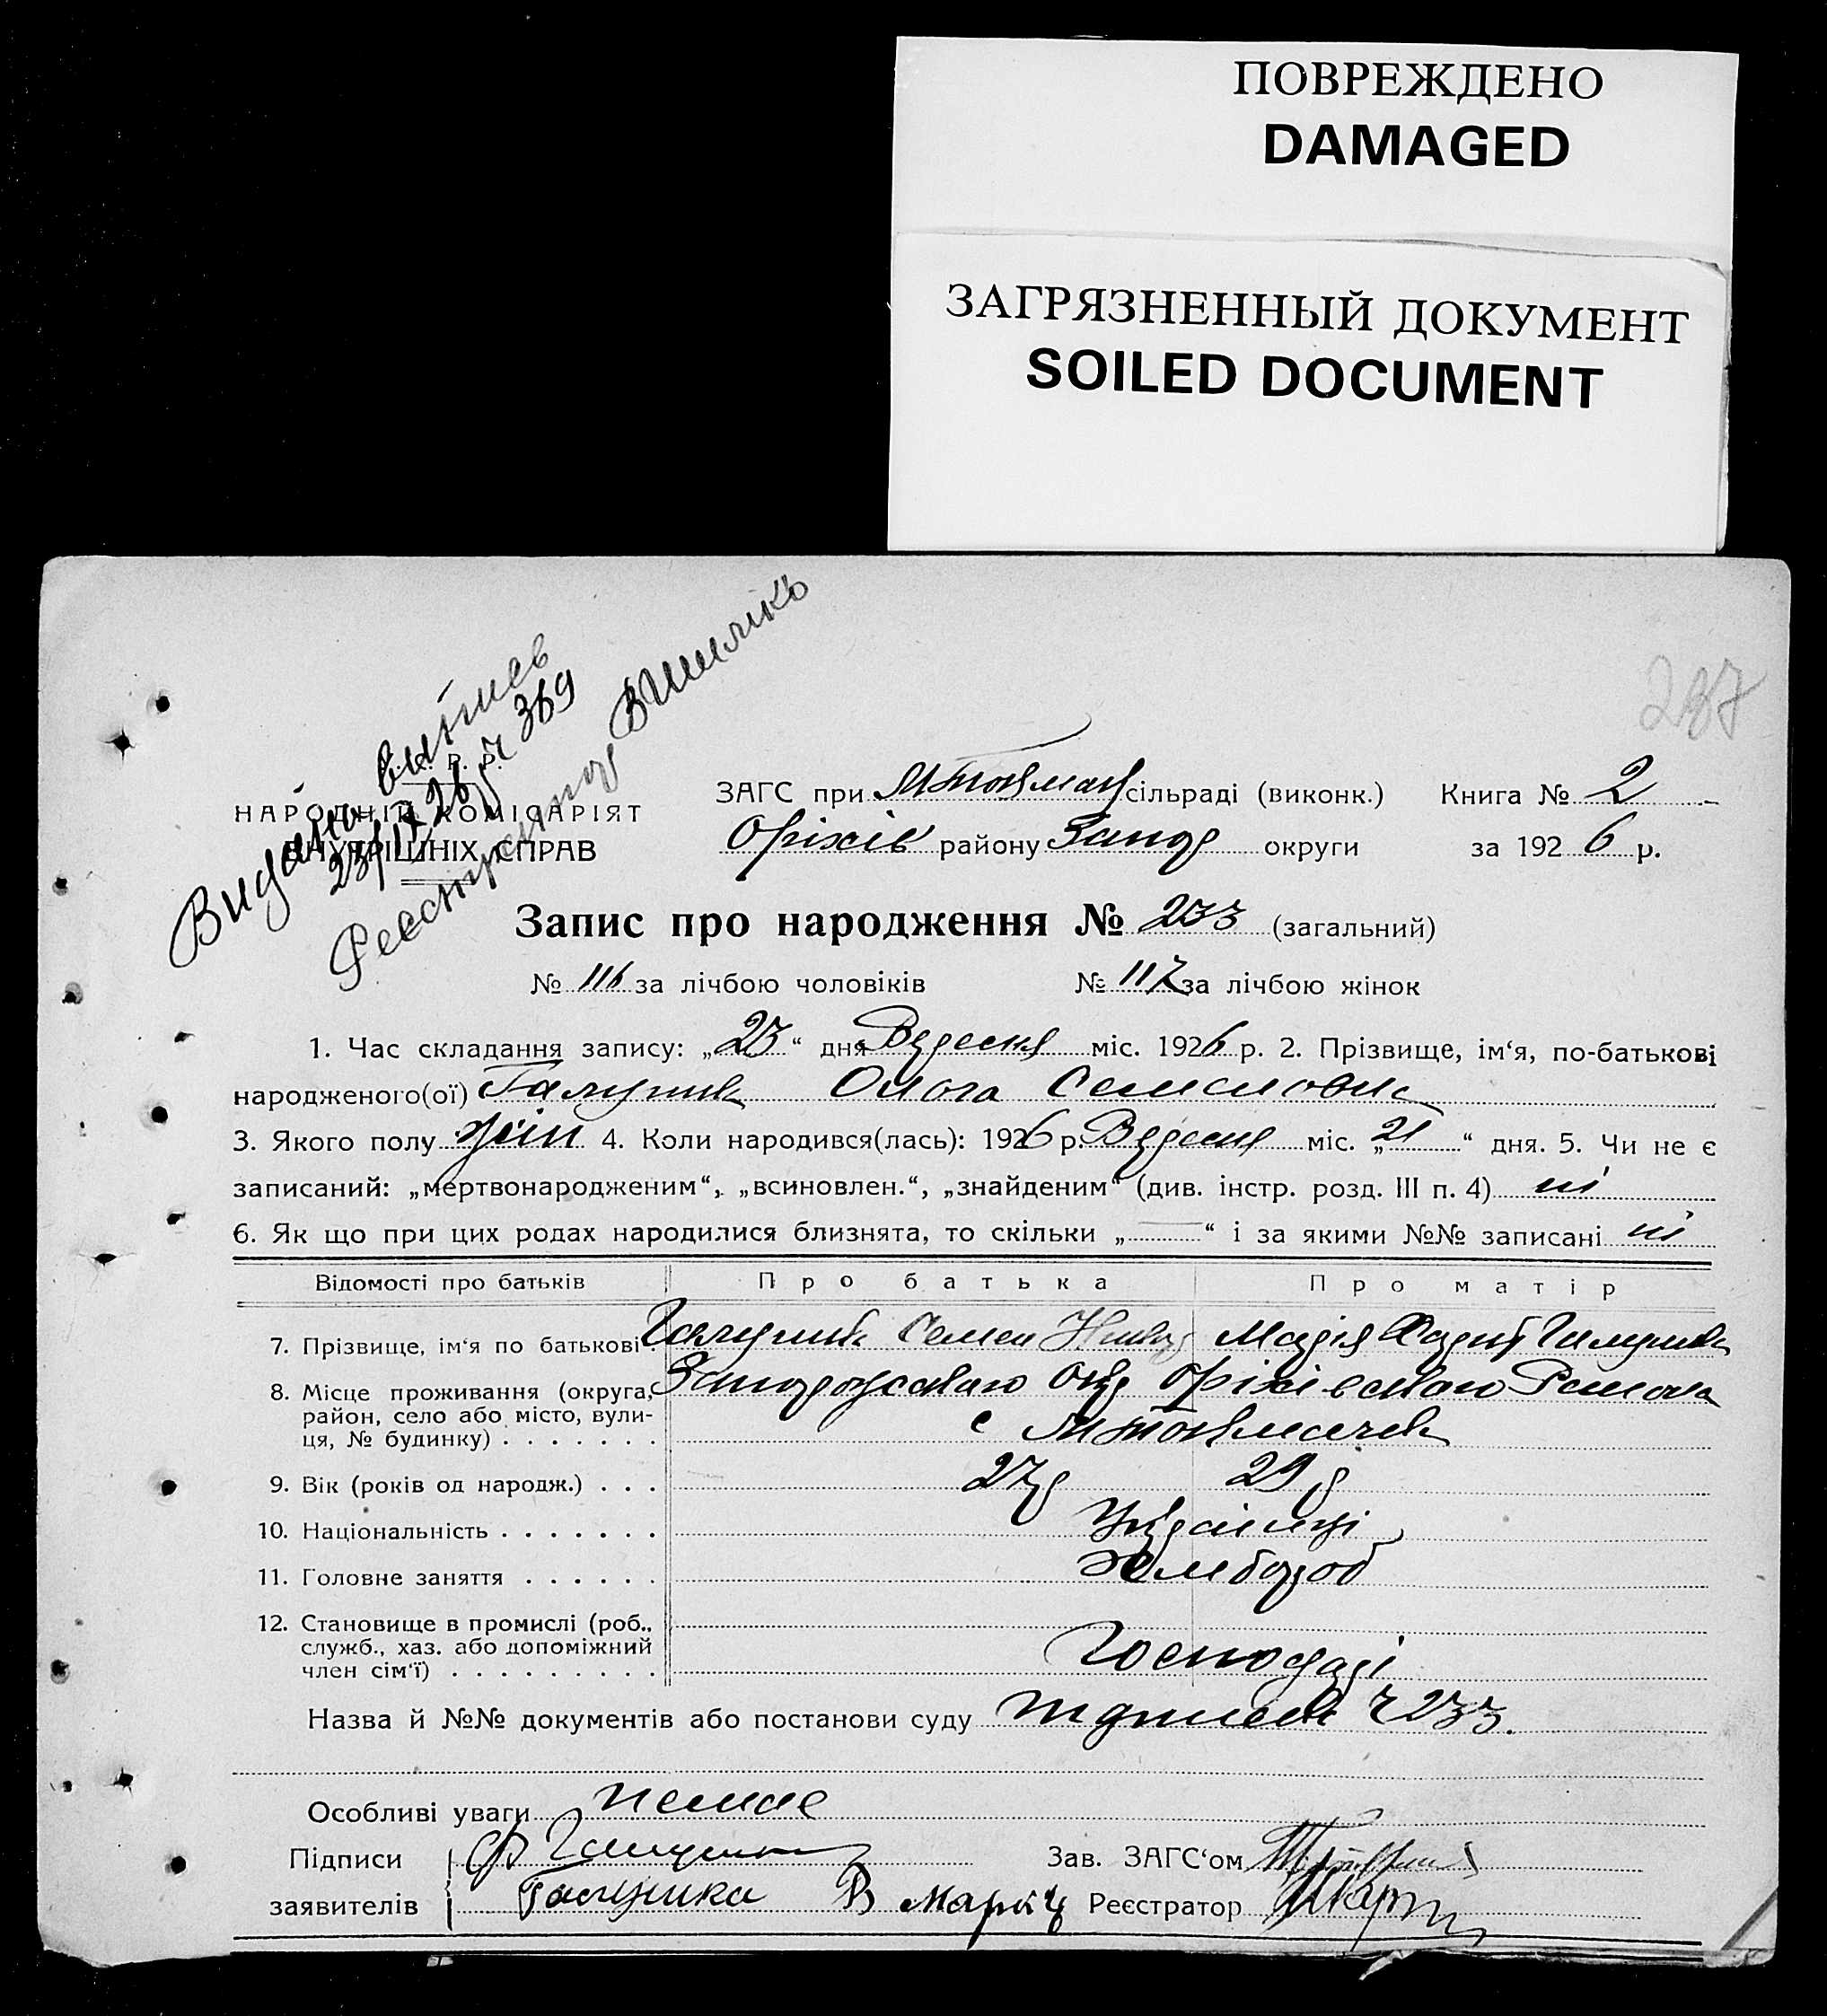 ПОВРЕЖДЕНО
DAMAGED
ЗАГРЯЗНЕННЫЙ ДОКУМЕНТ
SOILED DOCUMENT
287
Р. Р.
НАРОДНІЙ КОМІСАРІЯТ
ВНУТРІШНІХ СПРАВ
Видано витись
369
ЗАГС при МТокмач сільраді (виконк.) Книга № 2
Оріхів району Запор округи за 1926 р.
Запис про народження № 233 (загальний)
№ 116 за лічбою чоловіків № 117 за лічбою жінок
1. Час складання запису: „23“ дня Вересня міс. 1926 р. 2. Прізвище, ім‘я, по-батькові
народженого(ої) Галушка Ольга Семеновна
3. Якого полу жін 4. Коли народився(лась): 1926 р. Вересня міс. „21“ дня. 5. Чи не є
записаний: „мертвонародженим“, „всиновлен.“, „знайденим“ (див. інстр. розд. III п. 4) ні
6. Як що при цих родах народилися близнята, то скільки „ “ і за якими №№ записані ні
Відомості про батьків Про батька Про матір
7. Прізвище, ім‘я по батькові Галушка Семен Марія Харит Галушка
8. Місце проживання (округа, Запорожского Окр Оріхівского Району
район, село або місто, вули-
ця, № будинку) . . . . . . . с МТокмачка
9. Вік (років од народж.) . . . 27р 29р
10. Національність . . . . . . . Українці
11. Головне заняття . . . . . . Хлібороб
12. Становище в промислі (роб.,
служб., хаз. або допоміжний
член сім‘ї) . . . . . . . . . Господарі
Назва й №№ документів або постанови суду 233.
Особливі уваги немає
Підписи Галушка Зав. ЗАГС‘ом
заявителів Галушка Реєстратор